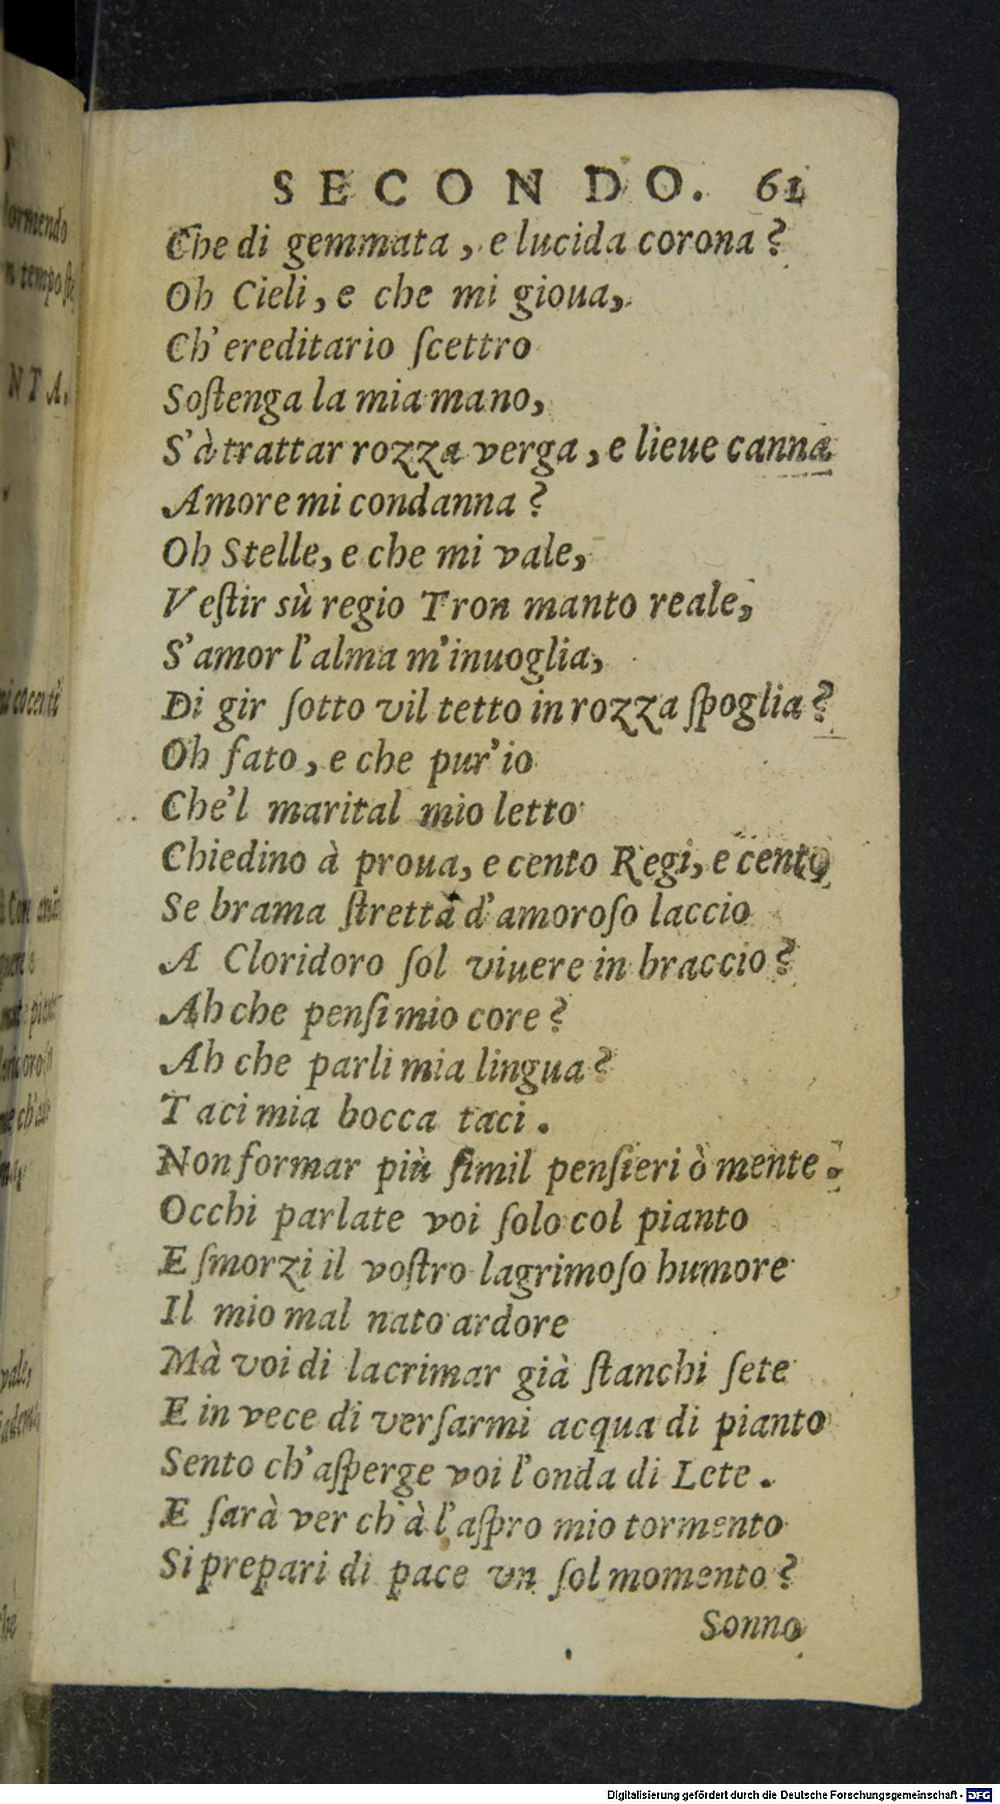 SECONDO. 61
Che di gemmata, e lucida corona?
Oh Cieli, e che mi gioua,
Ch'ereditario ſcettro
Soſtenga la mia mano,
S'à trattar rozza verga, e lieue canna
Amore mi condanna?
Oh Stelle, e che mi vale,
Veſtir sù regio Tron manto reale,
S'amor l'alma m'inuoglia,
Di gir ſotto vil tetto in rozza ſpoglia?
Oh fato, e che pur'io
Che'l marital mio letto
Chiedino à proua, e cento Regi, e cento
Se brama ſtretta d'amoroſo laccio
A Cloridoro ſol viuere in braccio?
Ah che penſi mio core?
Ah che parli mia lingua?
Taci mia bocca taci.
Non formar più ſimil penſieri ò mente.
Occhi parlate voi ſolo col pianto
E ſmorzi il voſtro lagrimoſo humore
Il mio mal nato ardore
Mà voi di lacrimar già ſtanchi ſete
E in vece di verſarmi acqua di pianto
Sento ch'aſperge voi l'onda di Lete.
E ſarà ver ch'à l'aſpro mio tormento
Si prepari di pace vn ſol momento?
Sonno
Digitalisierung gefördert durch die Deutsche Forschungsgemeinschaft - DFG